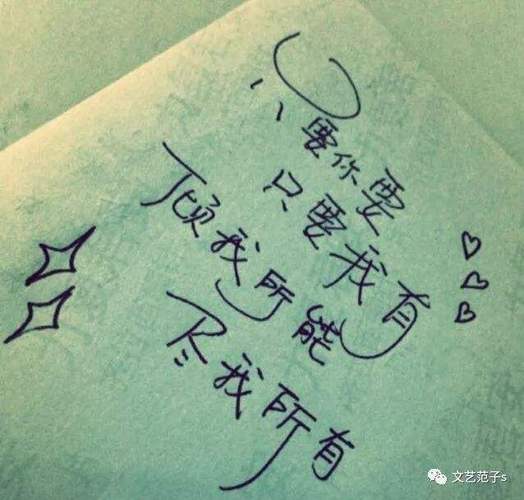 只要你要
只要我有
倾我所能
尽我所有
文艺范子s